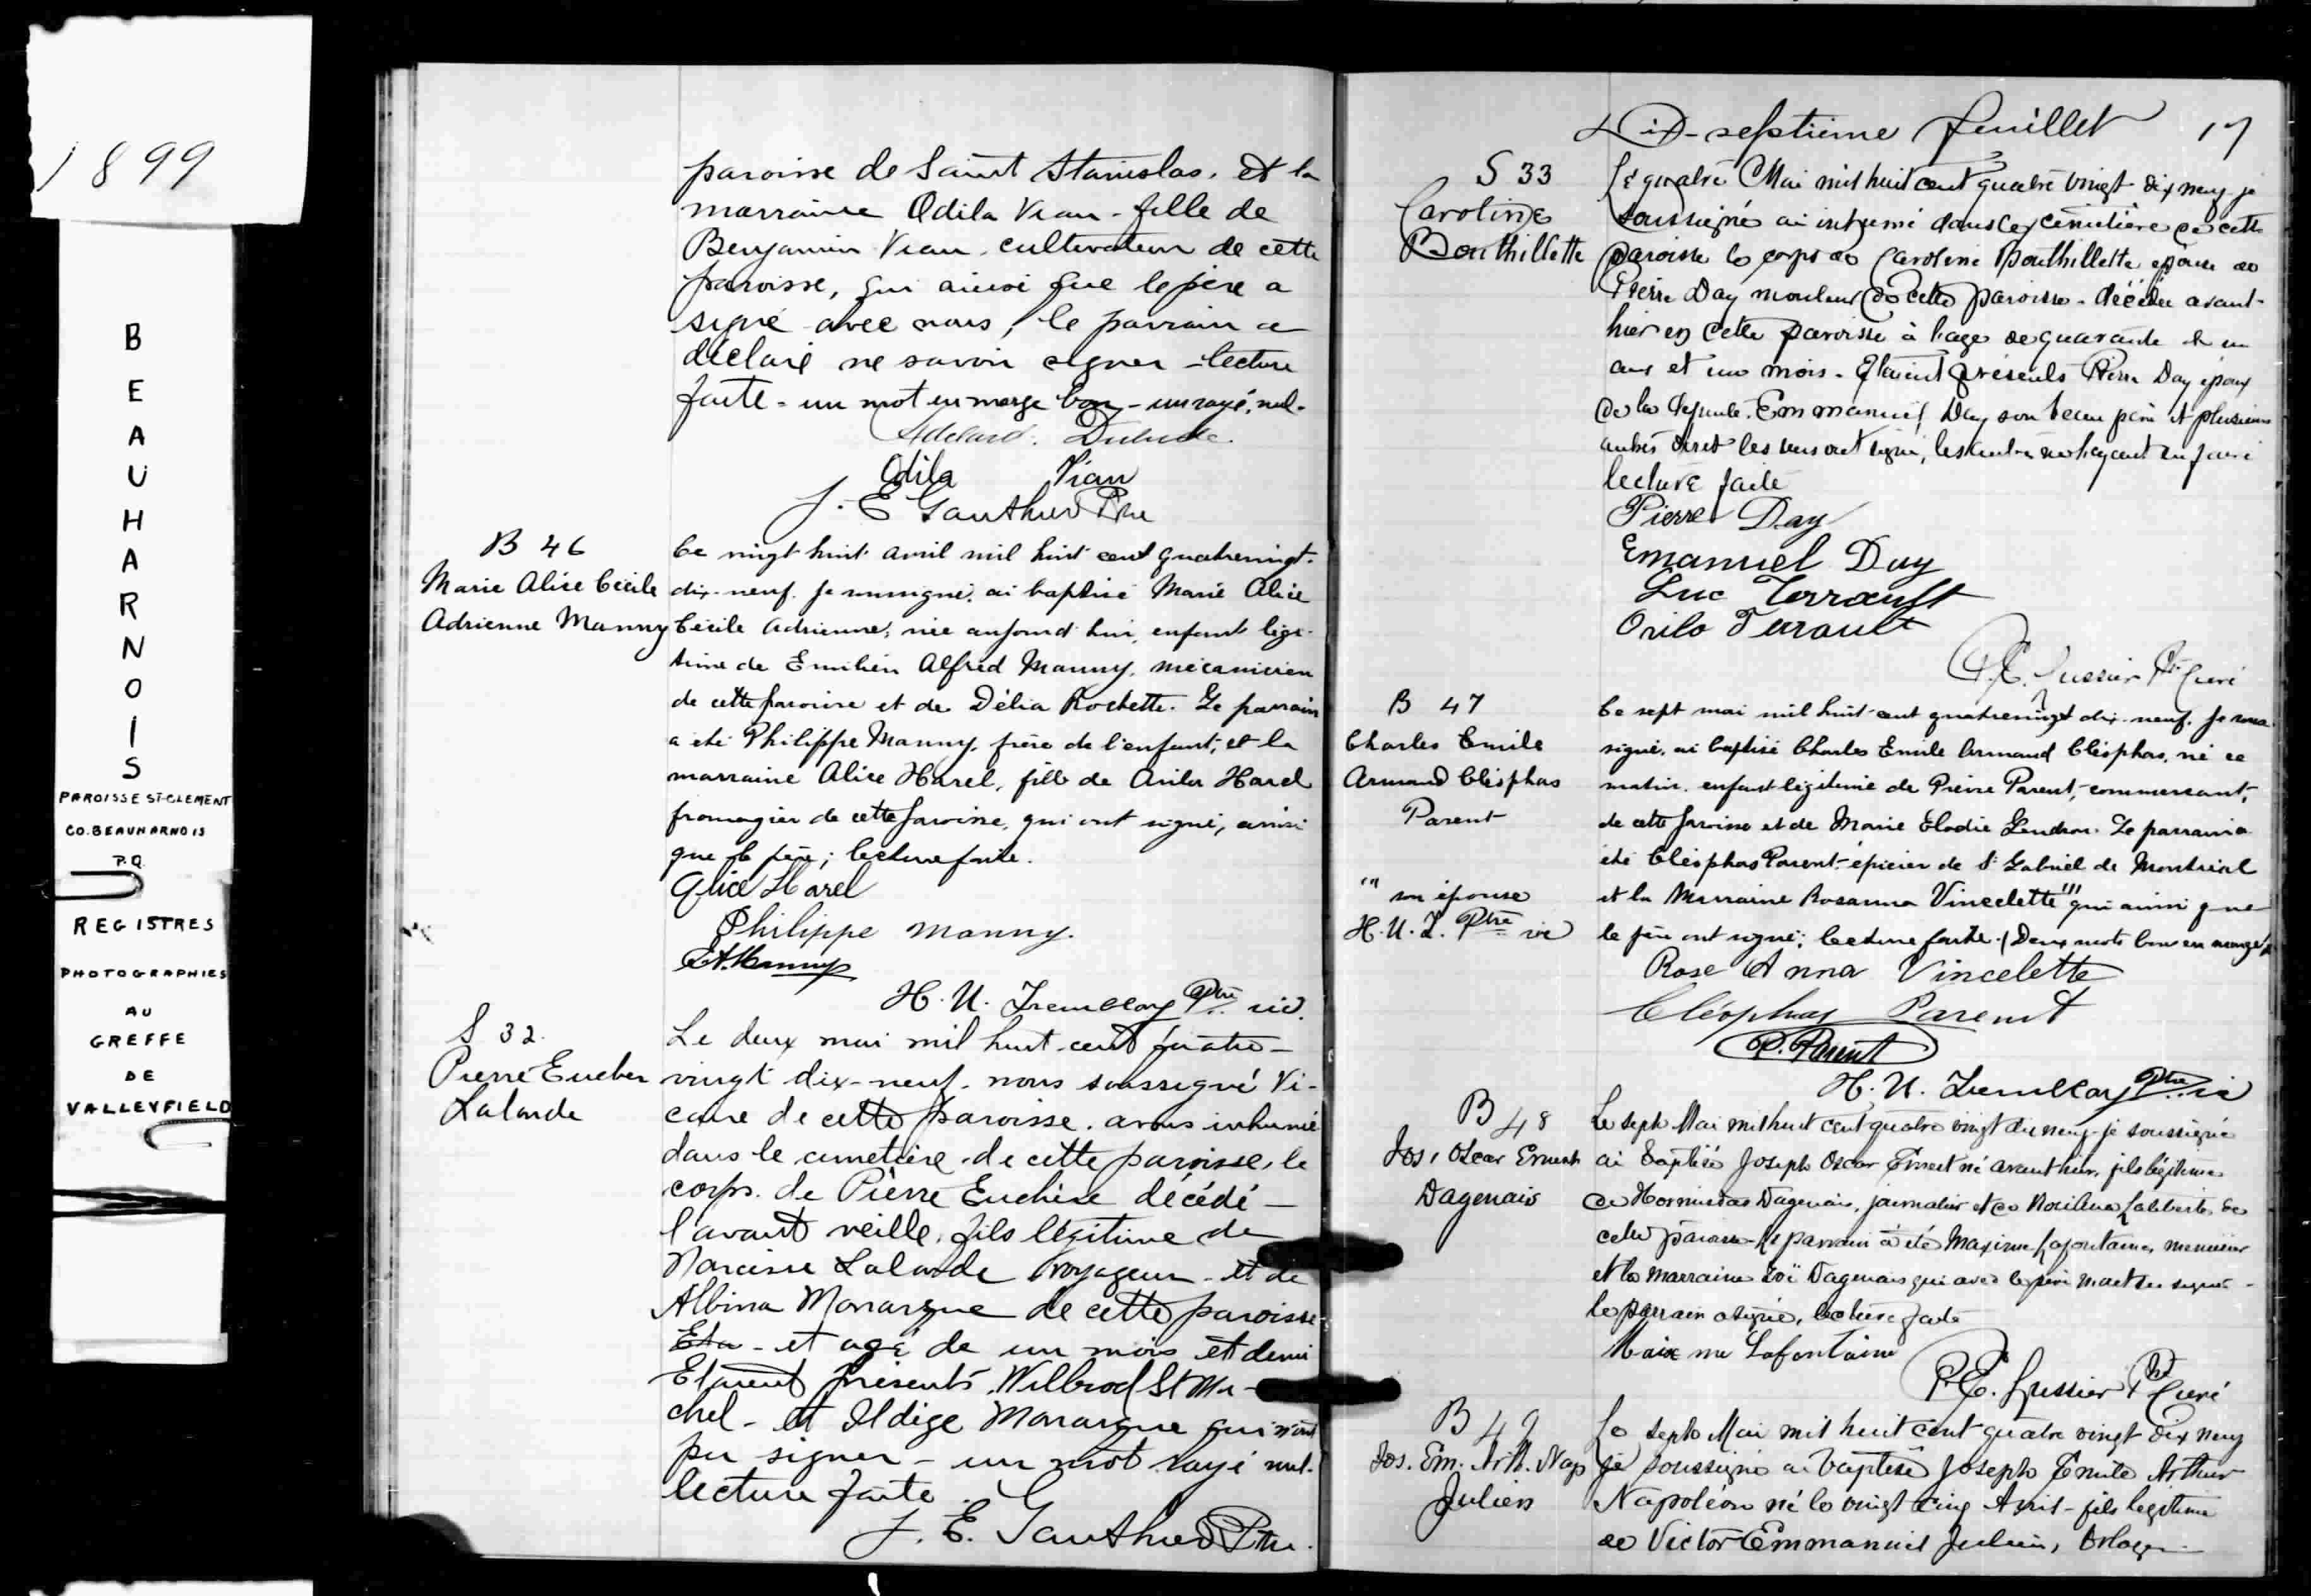 1899
BEAUHARNOIS
PAROISSE ST-CLEMENT
CO. BEAUHARNOIS
P.Q.
REGISTRES
PHOTOGRAPHIES
AU
GREFFE
DE
VALLEYFIELD
paroisse de Saint Stanislas. Et la
marraine Odila Vian - fille de
Benjamin Vian. cultivateur de cette
paroisse, qui ainsi que le père a
signé avec nous, le parrain a
déclaré ne savoir signer - lecture
faite - un mot en marge bon - un rayé, nul.
Odila Vian
J. E Gauthier Ptre
B 46
Marie Alice Cécile
Adrienne Manny
Ce vingt huit avril mil huit cent quatrevingt-
dix-neuf. Je soussigné, ai baptisé Marie Alice
Cécile Adrienne, née aujourd'hui, enfant légi-
time de Emilien Alfred Manny, mécanicien
de cette paroisse et de Délia Rochette. Le parrain
a été Philippe Manny, frère de l'enfant, et la
marraine Alice Harel, fille de Avila Harel
fromagier de cette paroisse, qui ont signé, ainsi
que le père; lecture faite.
Alice Harel
Philippe Manny.
E A. Manny
H. U. Tremblay Ptre vic.
S 32.
Pierre Eucher
Lalande
Le deux mai mil huit-cent quatre-
vingt dix-neuf. nous soussigné Vi-
caire de cette paroisse. avons inhumé
dans le cimetière de cette paroisse, le
corps. de Pierre décédé -
l'avant veille, fils légitime de
Narcisse Lalande voyageur - et de
Albina Monarque de cette paroisse
Eta - et agé de un mois et demi
Etaient présents. Wilbrod St Mi-
chel - et Ildige Monarque qui n'ont
pu signer - un mot rayé nul.
lecture faite.
J. E. Gauthier Ptre.
Dix-septième feuillet 17
S 33
Caroline
Bouthillette
Le quatre Mai mil huit cent quatre vingt dix neuf je
soussigné ai inhumé dans le cimetière de cette
paroisse le corps de Caroline Bouthillette épouse de
Pierre Day mouleur de cette paroisse - décédée avant-
hier en cette paroisse à l'age de quarante et un
ans et un mois. Etaient présents Pierre Day époux
de la défunte. Emmanuel Day son beau père et plusieurs
autres dont les uns ont signé, les autres
lecture faite
Pierre Day
Emanuel Day
Luc Terrault
Orila Terault
P. E. Lussier Ptre Curé
B 47
Charles Emile
Armand Cléophas
Parent
''' son épouse
H. U. T. Ptre vic
Ce sept mai mil huit-cent quatrevingt dix-neuf. Je sous-
signé, ai baptisé Charles Emile Armand Cléophas, né ce
matin. enfant légitime de Pierre Parent, commersant,
de cette paroisse et de Marie Elodie Gendron. Le parrain a
été Cléophas Parent-épicier de St Gabriel de Montréal
et la Marraine Rosanna Vincelette''' qui ainsi que
le père ont signé; lecture faite. (Deux mots bon en marge)
Rose Anna Vincelette
Cléophas Parent
P. Parent
H. U. Tremblay Ptre vic
B 48
Jos, Oscar Ernest
Dagenais
Le sept Mai mil huit cent quatre vingt dix neuf - je soussigné
ai baptisé Joseph Oscar Ernest né avant hier, fils légitime
de Hormisdas Dagenais, journalier et de Laliberté de
cette paroisse - le parrain a été Maxime Lafontaine, menuisier
et la marraine Zoë Dagenais qui avec le père signer -
le parrain a signé, lecture faite
Maixme Lafontaine
P. E. Lussier Ptre Curé
B 49
Jos. Em. Arth. Nap
Julien
Le sept Mai mil huit cent quatre vingt dix neuf
je soussigné ai baptisé Joseph Emile Arthur
Napoléon né le vingt cinq Avril - fils légitime
de Victor Emmanuel Julien,